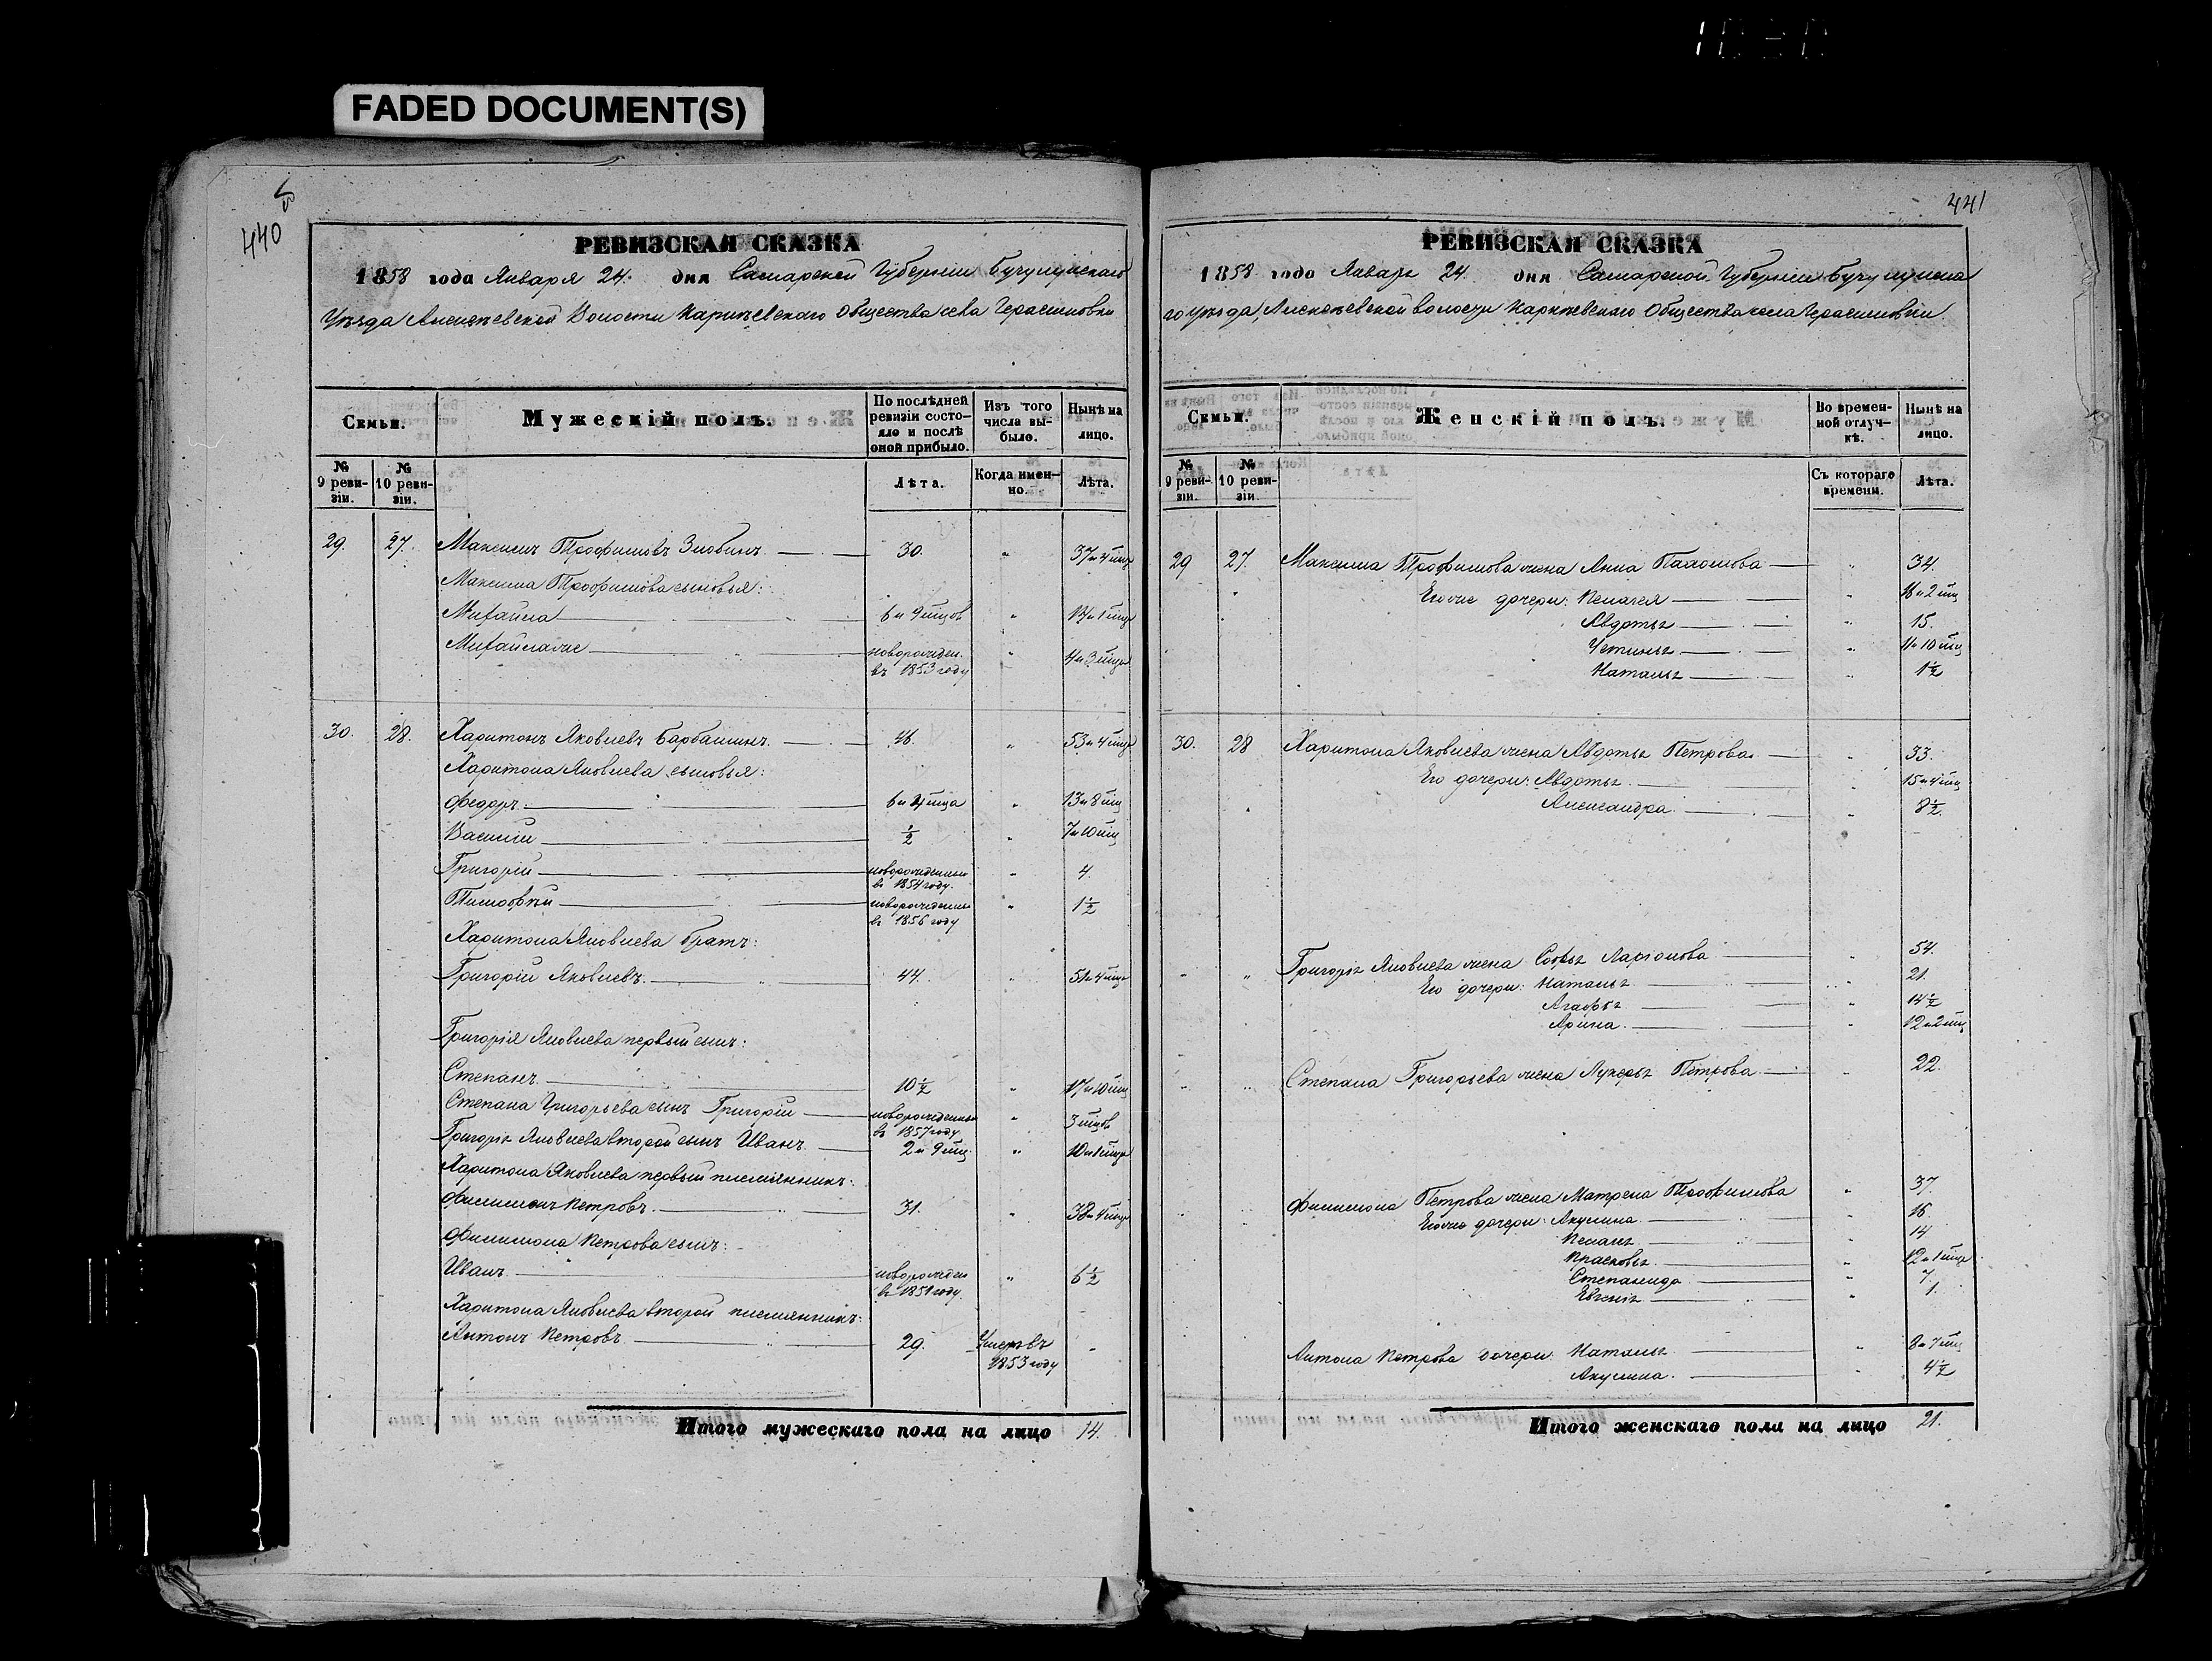 FADED DOCUMENT(S)
440
РЕВИЗСКАЯ СКАЗКА
1858 года Января 24. дня Самарской Губерніи Бугулминскаго
Уѣзда Волости Общества села Герасимовки
Семьи.
Мужескій полъ.
По послѣдней ревизіи состояло и послѣ оной прибыло.
Изъ того числа выбыло.
Нынѣ на лицо.
№ 9 ревизіи.
№ 10 ревизіи.
Лѣта.
Когда именно.
Лѣта.
29. 27. Максимъ Трофимовъ Злобинъ 30. " 37 и 4 мѣца
Максима Трофимова сыновья:
Михайла 6 и 9 мѣцов " 1 мѣца
Михайла же новорожден. въ 1853 году " 4 и 3 мѣца
30. 28. Харитонъ Яковлевъ Барбашинъ 46. " 53 и 4 мѣца
Харитона Яковлева сыновья:
Федоръ 6 и 4 мѣца " 13 и 8 мѣц
Василій ½ " 7 и 10 мѣц
Григорій новорожденный въ 1854 году. " 4.
Тимофѣй новорожденный въ 1856 году " 1½
Харитона Яковлева братъ:
Григорій Яковлевъ 44. " 51 и 4 мѣца
Григорія Яковлева первый сынъ:
Степанъ 10½ " 17 и 10 мѣц
Степана Григорьева сынъ Григорій новорожденный въ 1857 году " 3 мѣцов
Григорья Яковлева второй сынъ Иванъ 2 и 9 мѣц " 10 и 1 мѣца
Харитона Яковлева первый племянникъ:
Филимонъ Петровъ 31. " 38 и 4 мѣца
Филимона Петрова сынъ:
Иванъ новорожден въ 1851 году. " 6½
Харитона Яковлева второй племянникъ:
Антонъ Петровъ 29. Умеръ въ 1853 году -
Итого мужескаго пола на лицо 14.
441
РЕВИЗСКАЯ СКАЗКА
1858 года Январь 24. дня Самарской Губерніи Бугулминска
го уѣзда, волости Общества села Герасимовки
Семьи.
Женскій полъ.
Во временной отлучкѣ.
Нынѣ на лицо.
№ 9 ревизіи.
№ 10 ревизіи.
Съ котораго времени.
Лѣта.
29 27. Максима Трофимова жена Анна " 34.
Его же дочери: Пелагея " 18 и 2 мѣц
Авдотья " 15.
Устинья " 11 и 10 мѣц
Наталья " 1½
30. 28 Харитона Яковлева жена Авдотья Петрова " 33.
Его дочери: Авдотья " 15 и 4 мѣц
Александра " 8½
Григорья Яковлева жена Софья Ларіонова " 54.
Его дочери: Наталья " 21.
Агафья " 14½
Арина " 12 и 2 мѣц
Степана Григорьева жена Лукерья Петрова " 22.
Филимона Петрова жена Матрена Трофимова " 37.
Его же дочери: Акулина " 16.
Пелагья " 14
Прасковья " 12 и 1 мѣца
Степанида " 7.
Евгенія " 1.
Антона Петрова дочери: Наталья " 8 и 7 мѣц
Акулина " 4½
Итого женскаго пола на лицо 21.